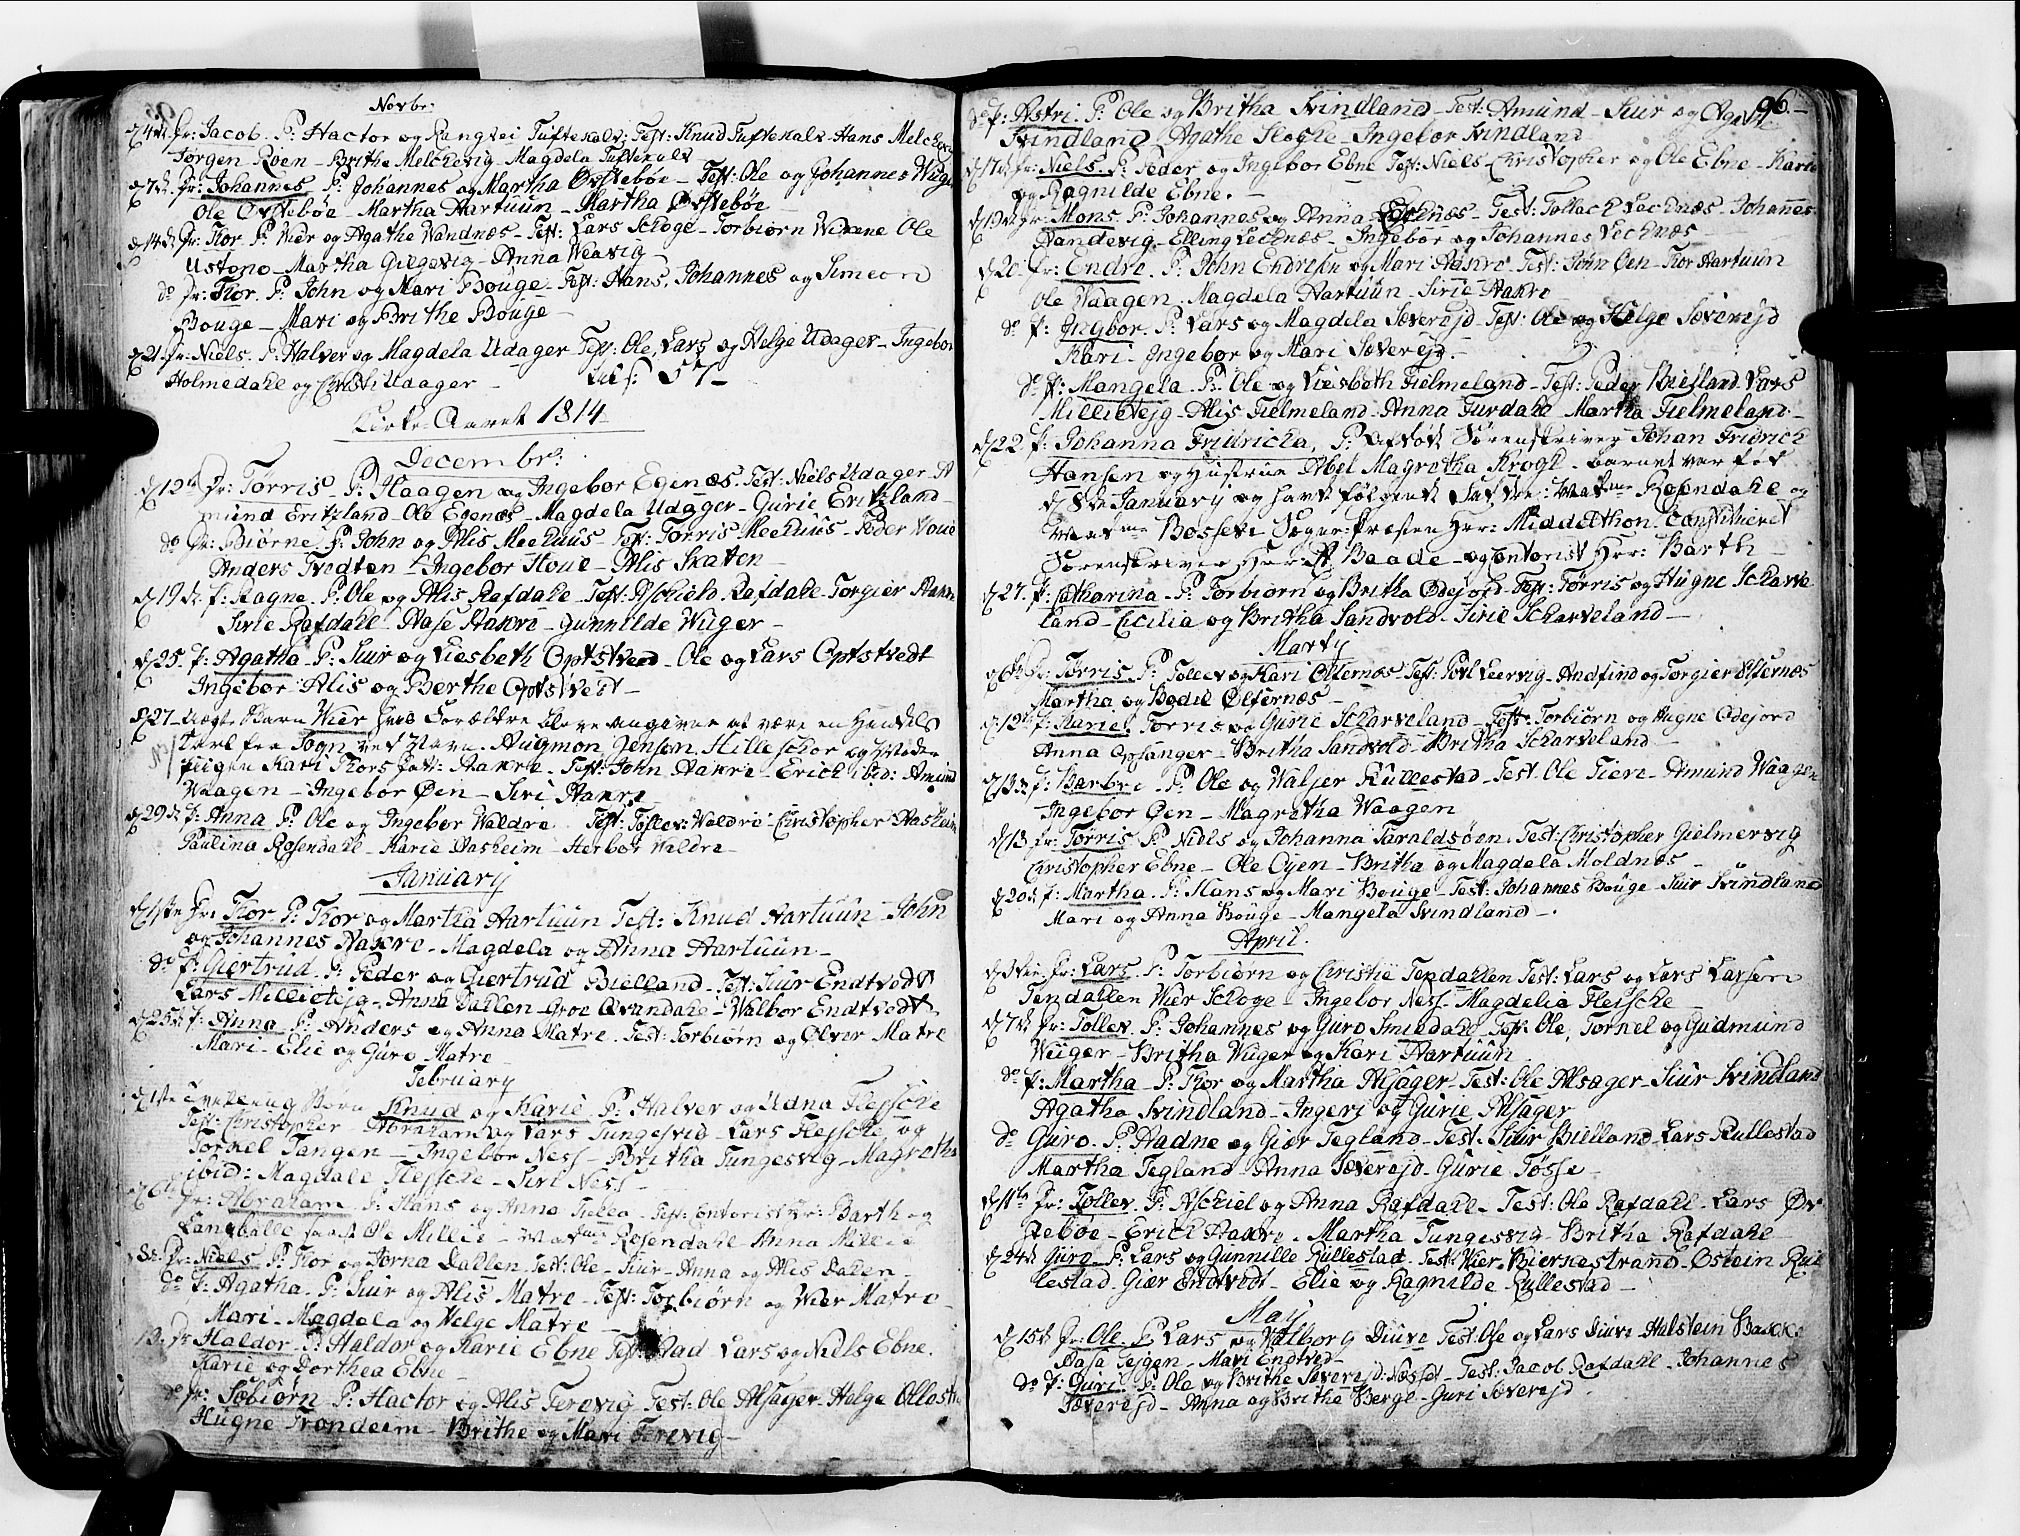 Novbr:
d 4de fr: Jacob. P: Hactor og Rangdei Tuftekalv: Test: Knud Tuftekalv Hans Melchevig
Torgen Roen - Brithe Melchevig Magdela Tuftekalv
d 7de fr: Johannes P: Johannes og Martha Østebøe - Test: Ole og Johannes Wuge
Ole Østebøe - Martha Aartuun - Martha Østebøe
d 14de fr: Thor P: Wier og Agathe Wandnæs - Test: Lars Schoge - Torbiørn Ole
Martha - Anna
do fr: Thor. P: John og Mari Bouge - Test: Hans, Johannes og Simeon
Bouge - Mari og Brithe Bouge -
d 21. fr: Niels. P: Halver og Magdela Udager Test: Ole, Lars og Helge Udager - Ingebor
Holmedahl og Christi Udager - 57 -
Kirke-Aaret 1814
Decembr:
d 12te fr: Torris - P: Haagen og Ingebor Egenæs. Test: Niels Udager - A
mund Eritzland - Ole Egenæs - Magdela Udager - Gurie Eritzland -
do fr: Biørne P: John og Alis Meehuus - Test: Torris Meehuus - Peder Houe
Anders Tvedten - Ingebor Houe - Alis Skaten
d 19de f: Ragne - P: Ole og Alis Rafdahl - Test: Aschield Rafdahl - Torgier Aakre
Sirie Rafdahl - Aase Aakre - Gunnilde Wuger -
d 25. f: Agatha - P: Siur og Liesbeth Optstved - Ole og Lars Optstvedt
Ingebor Alis og Berthe Optstvedt -
d 27 - uægte Barn Wier hvis Forældre bleve angivne at være en
Karl fra Sogn ved Navn. Augmon Jenssen Hilleschor og
pigen Kari Thors datt: Aakre - Test: John Aakre - Erich ibid: Amund
Waagen - Ingebor Øen - Siri Aakre
d 29de f: Anna P: Ole og Ingebor Waldre Test: Tollev: Waldre - Christopher Aasheim
Paulina Rosendahl - Karie Aasheim - Herbor Waldre -
January
d 1ste fr: Thor. P: Thor og Martha Aartuun Test: Knud Aartuun - John
og Johannes Aakre - Magdela og Anna Aartuun -
do f: Giertrud - P: Peder og Giertrud Bielland - Test: Siur Endtvedt
Lars Millietejg - Anna Dallen - Groe Qvandahl - Walbor Endtvedt
d 25de f: Anna P: Anders og Anna Matre. Test: Torbiørn og Olver Matre
Mari - Elie og Guro Matre -
February
d 1ste Tvilling Børn Knud og Karie P: Halver og Udna Flejsche
Test: Christopher - Abraham og Lars Tungesvig - Lars Flejsche og
Torkel Tangen - Ingebor Ness - Britha Tungesvig - Magretha
ibid: Magdale Flejsche - Siri Ness -
d 6te fr: Abraham P: Hans og Anna Test: Contorist Hr: Barth og
Ole Millie - Rosendahl Anna Millie
d 8de fr: Niels P: Thor og Jorna Dallen Test: Ole - Siur - Anna og Alis Dalen
do f: Agatha - P: Siur og Alis Matre - Test: Torbiørn og Wier Matre -
Mari - Magdela og Helge Matre -
13. fr: Haldor - P: Haldor og Karie Ebne Test: Lars og Niels Ebne.
Karie og Dorthea Ebne -
do fr: Sebiørn P: Hactor og Alis Terevig - Test: Ole Alsager - Helge
Hugne Trondeim - Brithe og Mari Terevig -
96.
do f: Astri. P: Ole og Britha Svindland - Test: Amund - Siur og
Svindland Agathe Ingebor Svindland
d 17de fr: Niels - P: Peder og Ingebor Ebne Test: Niels - Christopher og Ole Ebne - Karie
og Ragnilde Ebne. -
d 19de fr: Mons. P: Johannes og Anna Lechnæs - Test: Tollach Lechnæs - Johanes
Sandevig - Elling Lechnæs - Ingebor og Johannes Lechnæs
d 20. fr: Endre. P: John Endresen og Mari Aakre - Test: John Øen - Thor Aartuun
Ole Waagen - Magdela Aartuun - Sirie Aakre
do f: Ingbor. P: Lars og Magdela Sæverejd - Test: Ole og Helge Sæverejd
Kari - Ingebor og Mari Sæverejd. -
do f: Mangela - P: Ole og Liesbeth Fielmeland - Test: Peder Bielland Lars
Millietejg - Alis Fielmeland Anna Furdahl Martha Fielmeland -
d 22 f: Johanna Fridricha, P: Sorenskriver Johan Fridrich
Hansen og Hustrue Abel Magretha Krogh - barnet var fød
d 8de January og havde følgende Faddre: Rosendahl og
Bossevi Sogne-Præsten Hr: Middelthon. Constitueret
Sorenskriver Herr A Baade - og Contorist Hr: Barth -
d 27. f: Catharina - P: Torbiørn og Britha Ødejord - Test: Torris og Hugne Scharve
land - Cicilia og Britha Sandvold - Sirie Scharveland -
Marty
d 6te fr: Torris - P: Tollev og Kari Ølfernæs - Test: Povl Leervig - Andfind og Torgier Ølfernæs
Martha og Bodil Ølfernæs -
d 12te f: Torris og Gurie Scharveland - Test: Torbiørn og Hugne Ødejord
Anna Opsanger - Britha Sandvold - Britha Scharveland
d 13de f: Barbre - P: Ole og Walsier Kullestad - Test: Ole Tien - Amund Waagen
Ingebor Øen - Magretha Waagen
d 13 fr: Torris P: Niels og Johanna Taraldsøen - Test: Christopher Gielmervig
Christopher Ebne - Ole Øyen - Britha og Magdela Moldnæs -
d 20de f: Martha - P: Hans og Mari Bouge - Test: Johannes Bouge - Siur Svindland
Mari og Anna Bouge - Mangela Svindland -.
April.
d fr: Lars P: Torbiørn og Christie Tendallen Test: Lars og Lars Larsen
Tendallen Wier Schoge - Ingebor Ness - Magdelia Fleische -
d 7de fr: Tollev. P: Johannes og Guro Smedahl - Test: Ole, Tørnel og Gudmund
Wuger - Britha Wuger og Kari Aartuun
do f: Martha - P: Thor og Martha Alsager - Test: Ole Alsager - Siur Svindland
Agatha Svindland - Ingeri og Gurie Alsager
do Guro - P: Aadne og Giær Tegland - Test: Siur Bielland - Lars Kullestad
Martha Tegland - Anna Sæverejd - Gurie Tosse -
d 11te fr: Tollev. P: Aschiel og Anna Rafdahl - Test: Ole Rafdahl - Lars Øv
rebøe - Erich Aakre - Martha Tungesvig - Britha Rafdahl
d 24de Guro - P: Lars og Gunnille Kullestad - Test: Wier Biernestrand - Østein Kul
lestad - Giær Endtvedt - Elie og Ragnilde Kullestad -
May
d 15de fr: Ole P: Lars og Walborg Diuve Test: Ole og Lars Diuve - Halstein Backe
Aasa Tejgen - Mari Endtved -
do f: Guri P: Ole og Brithe Sæverejd: Næsset - Test: Jacob Rafdahl - Johannes
Sæverejd - Anna og Brithe Berge - Guri Sæverejd.